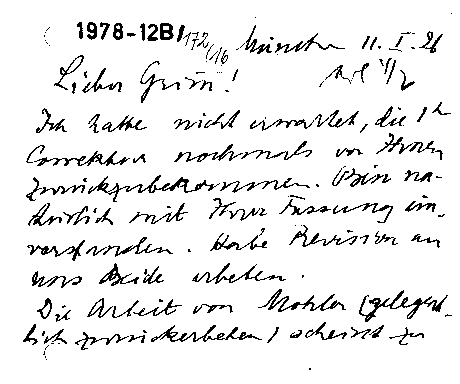 1978-12B/172/16
München 11. I. 26
Lieber Grimm!
Ich hatte nicht erwartet, die 1te
Correktur nochmals von Ihnen
zurückzubekommen. Bin na-
türlich mit Ihrer Fassung ein-
verstanden. Habe Revision an
uns Beide erbeten.
Die Arbeit von Mohler (gelegent-
lich zurückerbeten) scheint zu